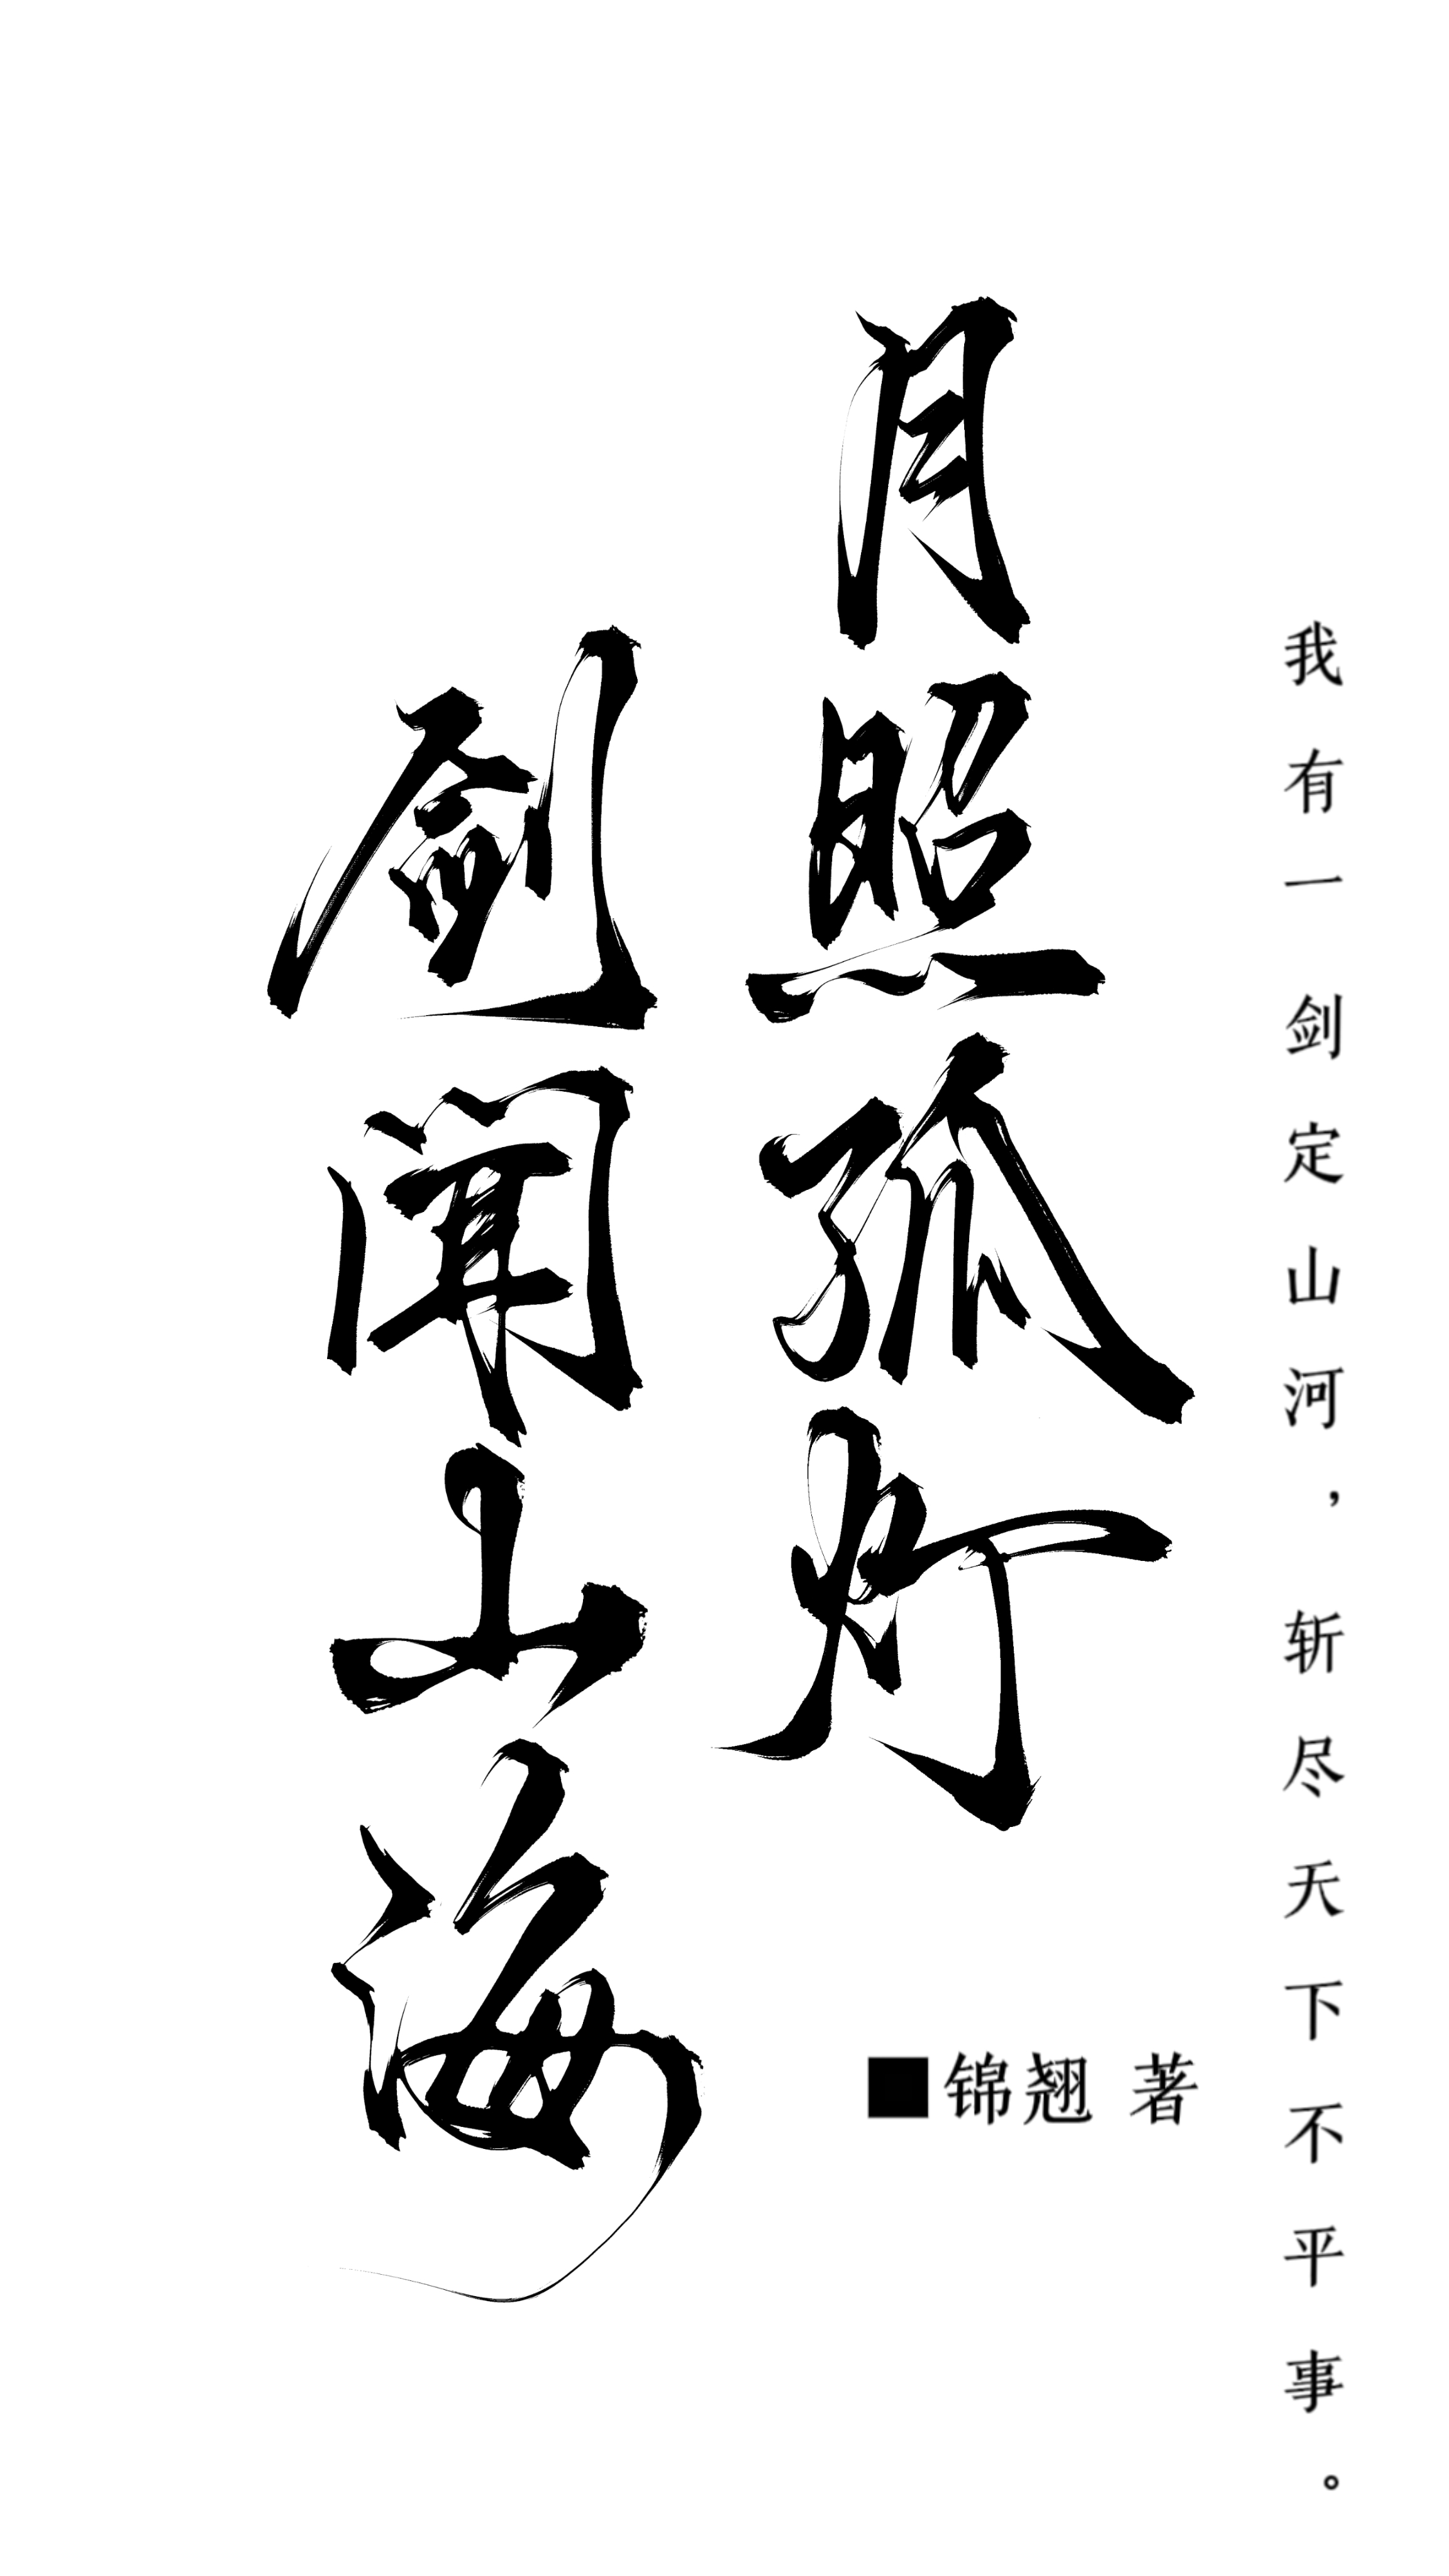 我有一剑定山河，斩尽天下不平事。
月照孤灯
剑闻山海
■锦翘 著